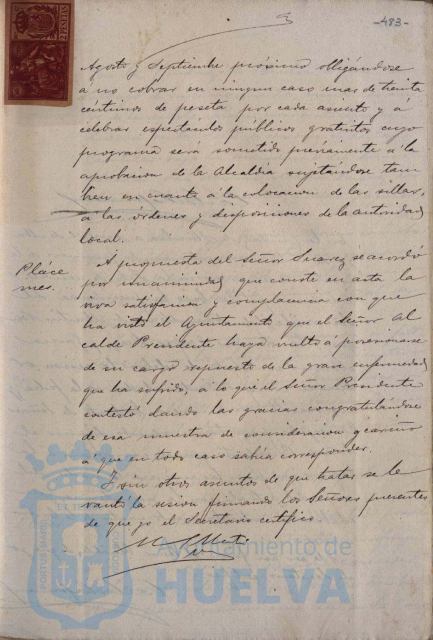 -483-
Agosto y Septiembre próximo obligándose
a no cobrar en ningun caso mas de treinta
céntimos de peseta por cada asiento y á
celebrar espectáculos públicos gratuitos cuyo
programa será sometido préviamente á la
aprobacion de la Alcaldía sujetándose tam
bien en cuanto á la colocacion de las sillas,
á las órdenes y disposiciones de la autoridad
local.
Pláce
mes.
A propuesta del Señor Suarez se acordó
por unanimidad que conste en acta la
viva satisfaccion y complacencia con que
ha visto el Ayuntamiento que el Señor Al
calde Presidente haya vuelto á posesionarse
de su cargo repuesto de la gran enfermedad
que ha sufrido, á lo que el Señor Presidente
contestó dando las gracias congratulándose
de esa muestra de consideracion y cariño
á que en todo caso sabria corresponder.
Y sin otros asuntos de que tratar se le
vantó la sesion firmando los Señores presentes
de que yo el Secretario certifico.
Ayuntamiento de
HUELVA